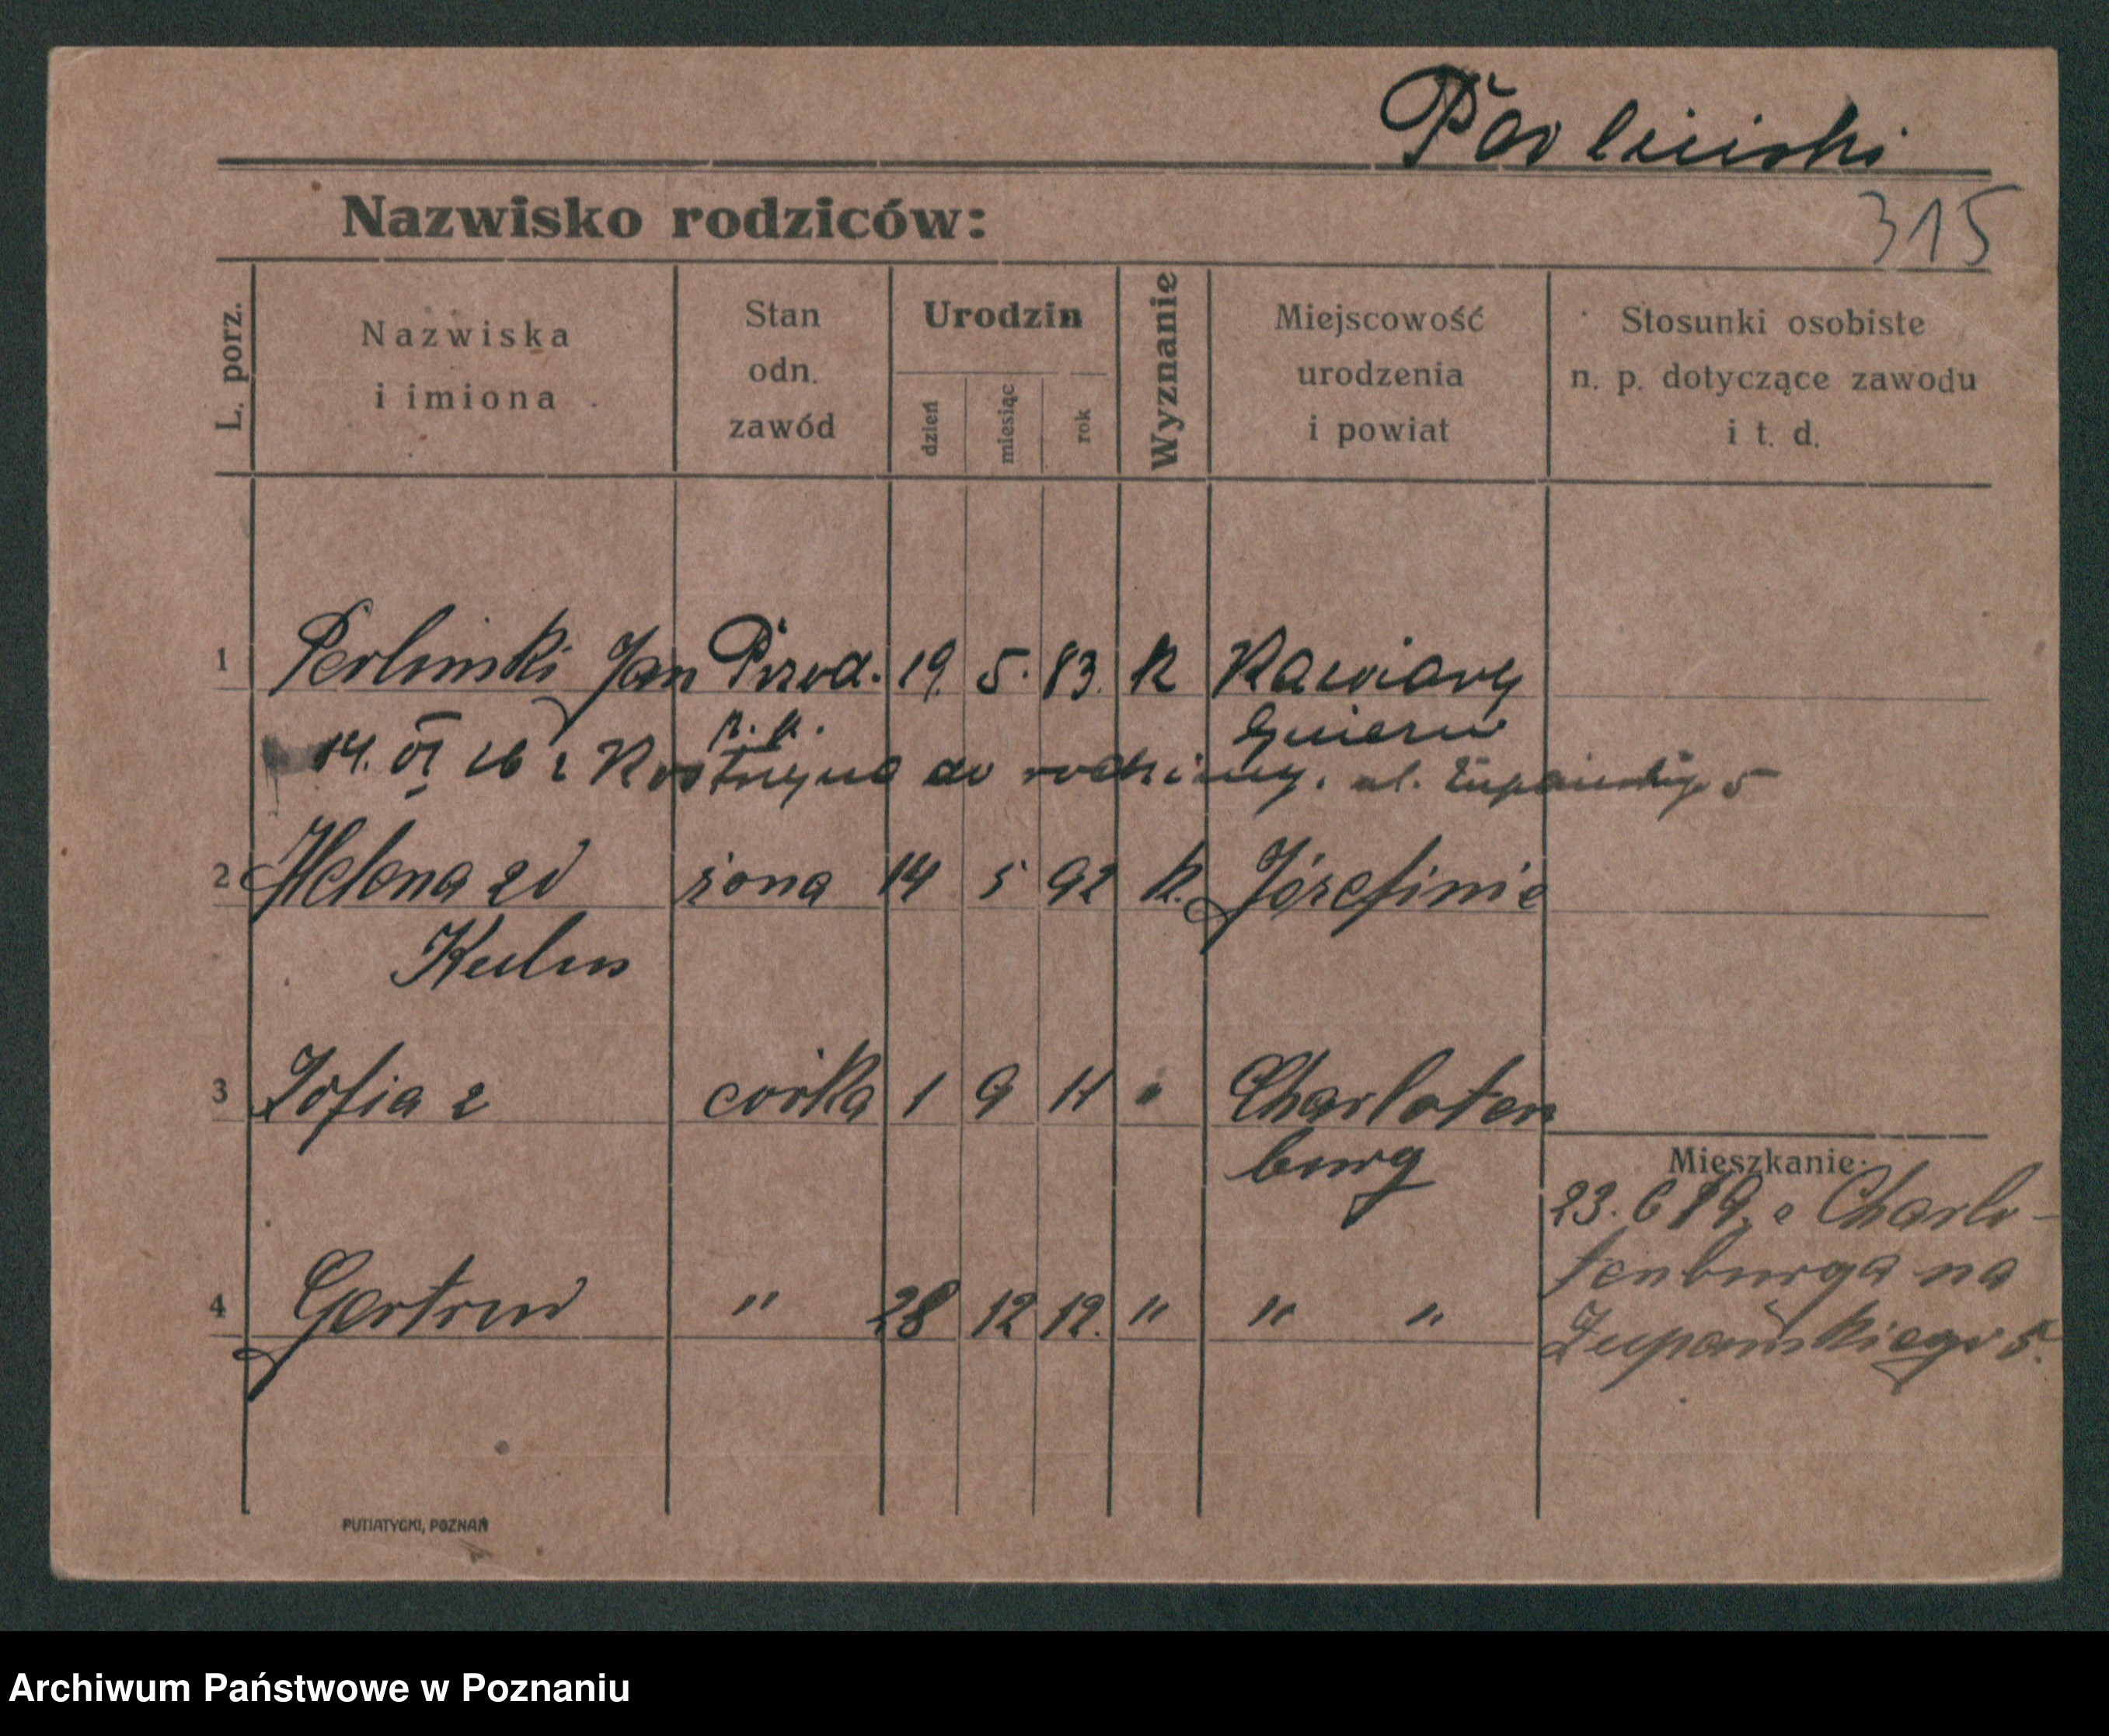 Perliński
315
Nazwisko rodziców:
L. porz.
Nazwiska
i imiona
Stan
odn.
zawód
Urodzin
dzień
miesiąc
rok
Wyznanie
Miejscowość
urodzenia
i powiat
Stosunki osobiste
n. p. dotyczące zawodu
i t. d.
1 Perlinski Jan 19. 5. 83. K Kawiary
14. VI 26 z Kostrzyna do rodziny. ul. 5
2 Helena zd żona 14 5 92 K. Józefinie
3 Zofia z corka 1 9 11 " Charloten
burg
Mieszkanie:
23. 6 19. z Charlo-
tenburga na
Zupańskiego 5.
4 Gertrud " 28 12 12. " " "
PUTIATYCKI, POZNAŃ
Archiwum Państwowe w Poznaniu